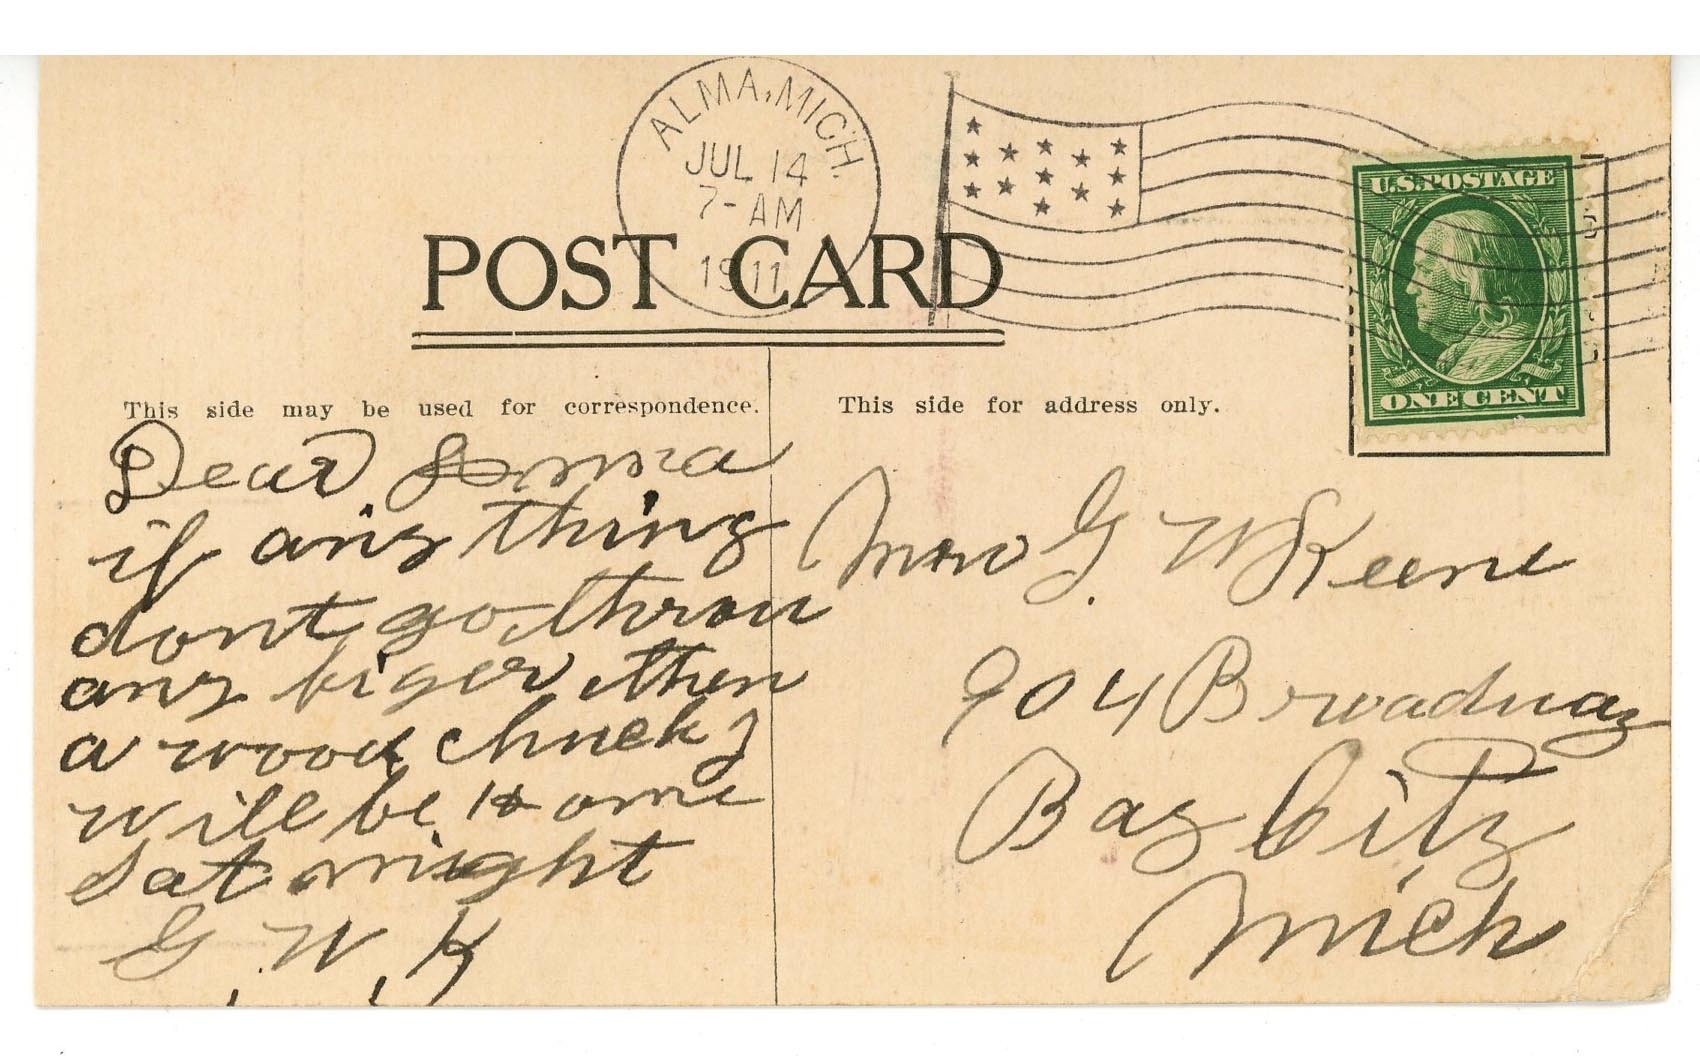 ALMA, MICH.
JUL 14
7-AM
1911
U.S. POSTAGE
ONE CENT
POST CARD
This side may be used for correspondence.
This side for address only.
Dear
if any thing
dont go throu
any biger then
a wood chuck I
will be Home
Sat night
G. W. K
Mrs G. W Keene
904 Broadway
Bay City
Mich